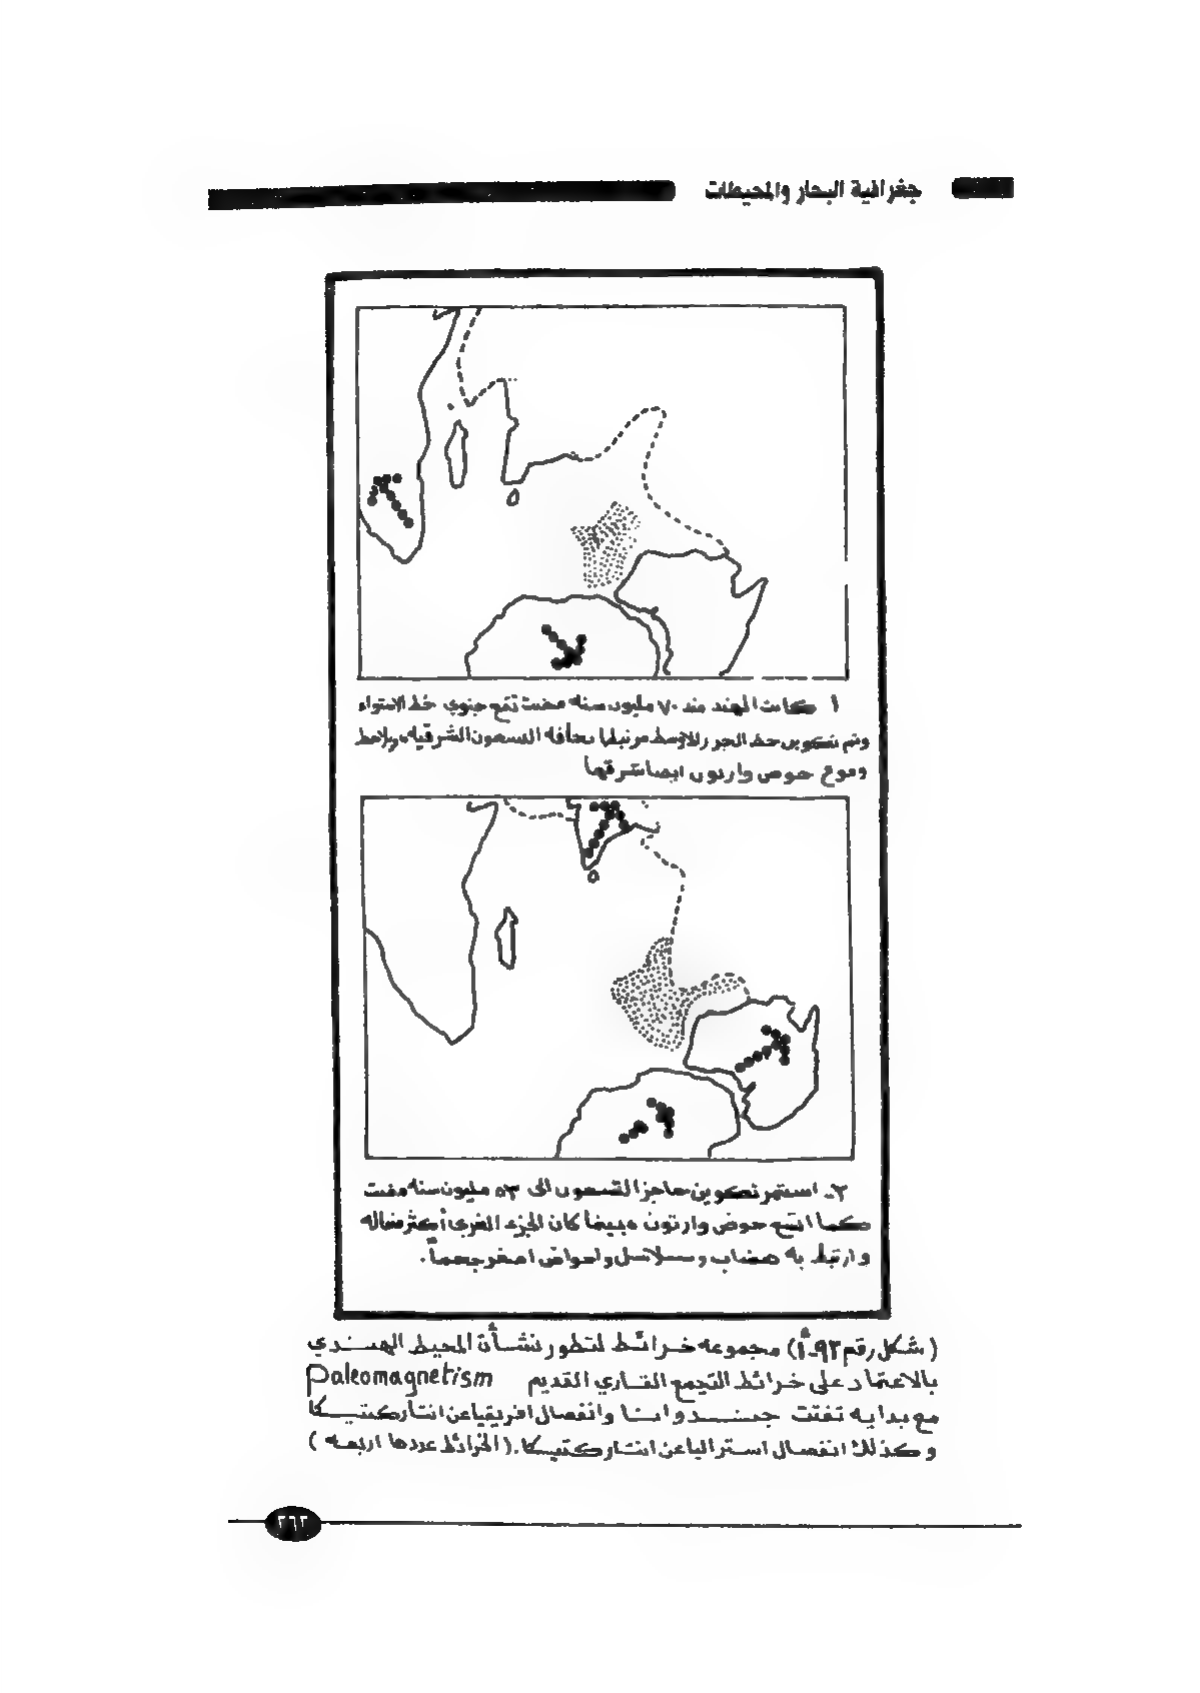 جغرافية البحار والمحيطات
أ كانت الهند منذ ٧٠ مليون سنه مضت تقع جنوبي خط الاستواء
وتم تكوين حط الحرر للاوسط مرتبطا بحافه التسعون الشرقيه ويلاحظ
وموع حوض وارتون ايضا شرقها
٢ـ استمر تكوين حاجز التسعون الى ٥٣ مليون سنه مضت
كما اتسع حوض وارتون بينما كان الجزء الغربى أكثر ضاله
وارتبط به هضاب وسلاسل واحواض اصغر حجماً.
(شكل رقم ٩٣ـأ) مجموعه خرائط لتطور نشأة المحيط الهندي
بالاعتماد على خرائط التجمع القاري القديم Paleomagnetism
مع بدايه تفتت جندوانا وانفصال افريقيا عن انتاركتيكا
وكذلك انفصال استراليا عن انتاركتيكا. (الخرائط عددها اربعه)
٢٦٢